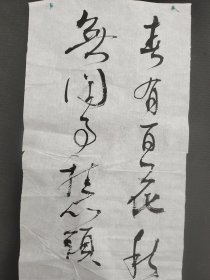 春有百花秋
無閒事挂心頭